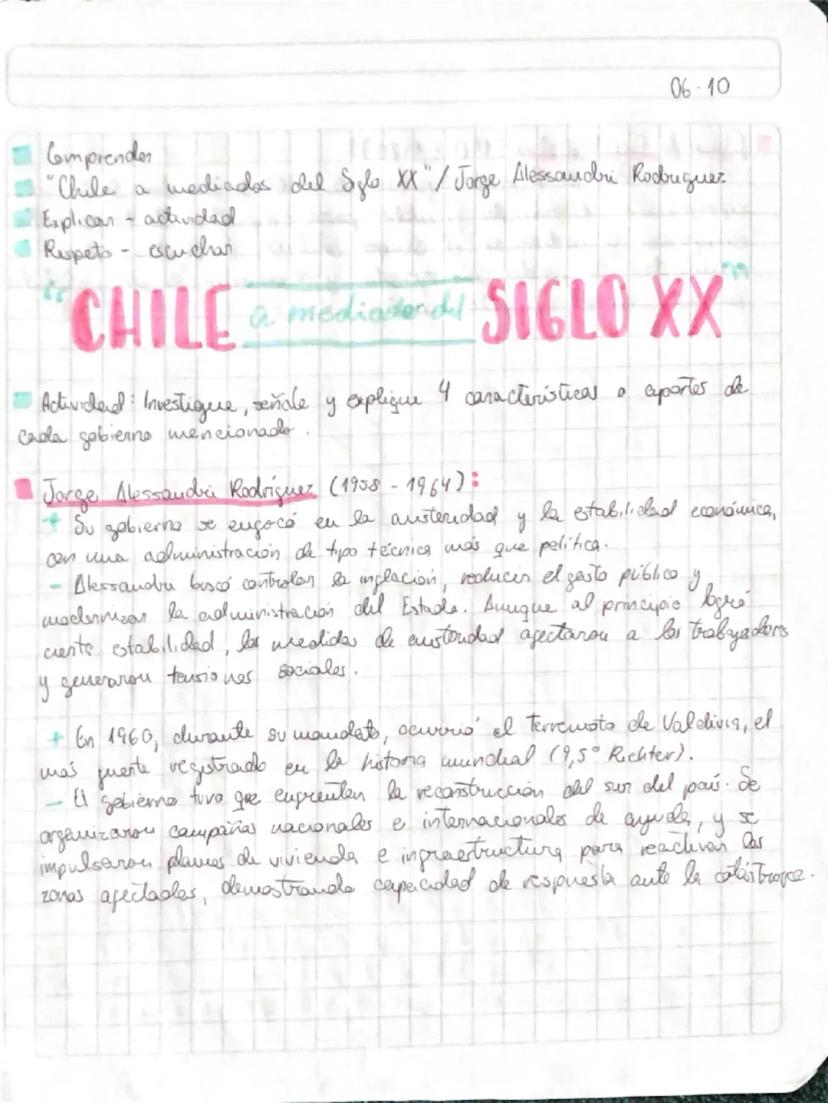 06-10
Comprender
"Chile a mediados del Siglo XX" / Jorge Alessandri Rodriguez
Explicar - actividad
Respeto - escuchar
"CHILE a mediados del SIGLO XX"
Actividad: Investigue, señale y explique 4 características o aportes de
cada gobierno mencionado.
Jorge Alessandri Rodríguez (1958 - 1964):
+ Su gobierno se enfocó en la austeridad y la estabilidad económica,
con una administración de tipo técnica más que política.
- Alessandri buscó controlar la inflación, reducir el gasto público y
modernizar la administración del Estado. Aunque al principio logró
cierta estabilidad, las medidas de austeridad afectaron a los trabajadores
y generaron tensiones sociales.
+ En 1960, durante su mandato, ocurrió el Terremoto de Valdivia, el
más fuerte registrado en la historia mundial (9,5° Richter).
- El gobierno tuvo que enfrentar la reconstrucción del sur del país. Se
organizaron campañas nacionales e internacionales de ayuda, y se
impulsaron planes de vivienda e infraestructura para reactivar las
zonas afectadas, demostrando capacidad de respuesta ante la catástrofe.